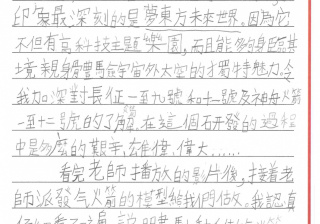 印象最深刻的是夢東方未來世界。因為它
不但有高科技主題樂園,而且能夠身臨其
境,親身體驗宇宙外太空的獨特魅力。令
我加深對長征一至九號和十一號及神舟火箭
一至十二號的了解,在這個研發的過程
中是多麼的艱辛、雄偉、偉大……
看完老師播放的影片後,接着老
師派發气火箭的模型給我們做。我認真